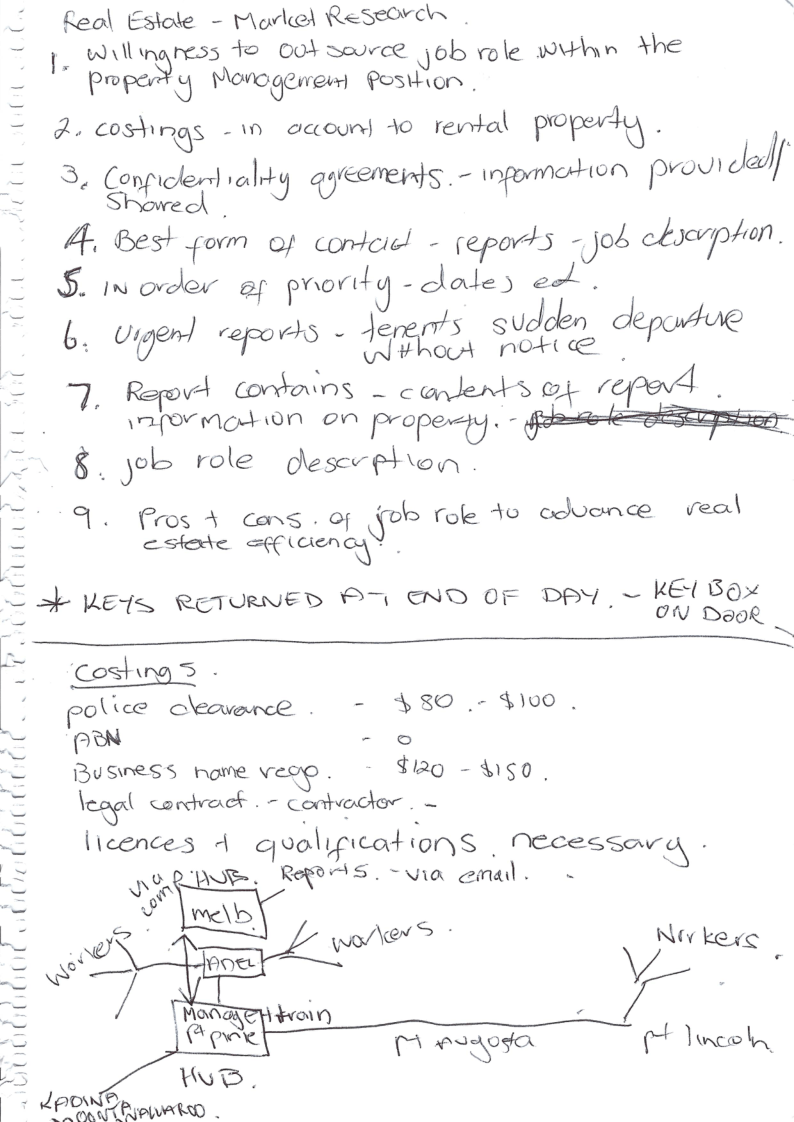 Real Estate - Market Research.
1. Willingness to out source job role within the
property Management Position.
2. costings - in account to rental property.
3. Confidentiality agreements. - information provided/
Shared.
4. Best form of contact - reports - job descrption.
5. IN order of priority - dates ect.
6. Urgent reports - tenents sudden departure
Without notice.
7. Report contains - contents of report.
information on property. - job role descrption
8. job role descrption.
9. Pros + cons. of job role to advance real
estate efficiency.
* KEYS RETURNED AT END OF DAY. - KEY BOX
ON DOOR
Costings.
police clearance. - $80. - $100.
ABN - 0
Business name rego. - $120 - $150.
legal contract. - contractor. -
licences + qualifications necessary.
via comp HUB. Reports. - via email.
melb.
Workers ADEL Workers. Workers.
Manage + train
pt pirie
pt Augusta pt lincoln
HUB.
KADINA